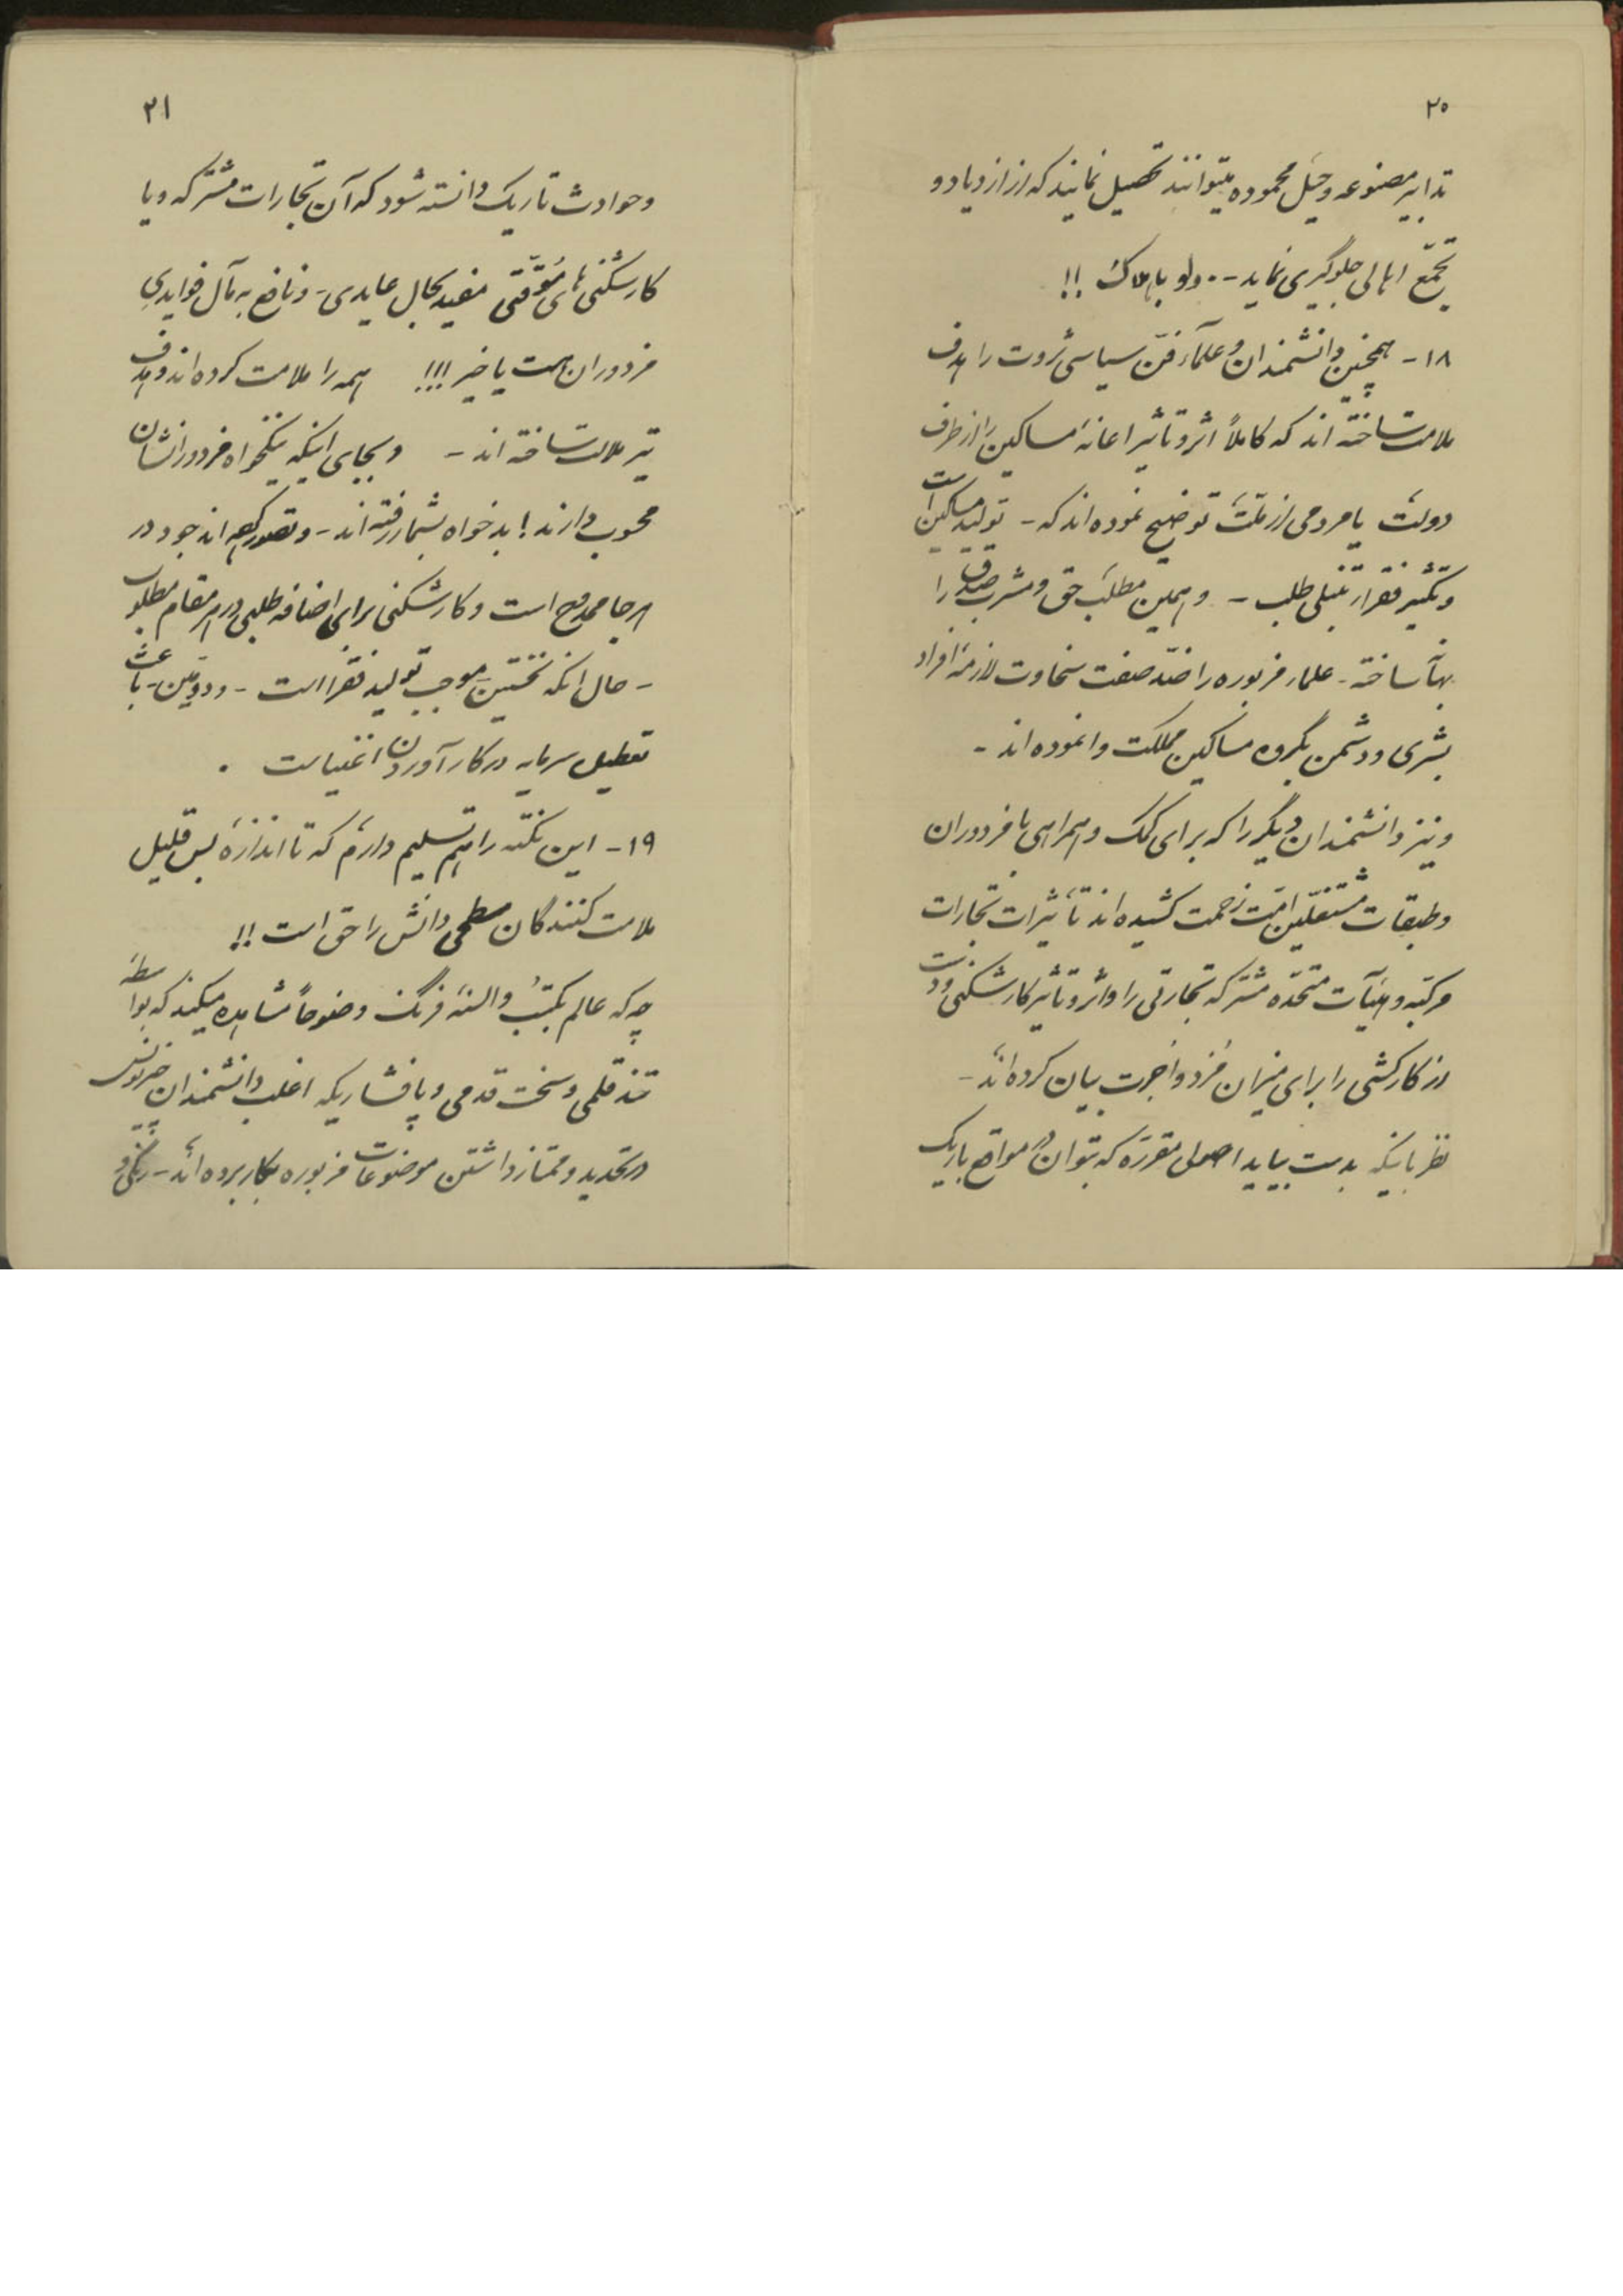 ۲۰
تدابیر مصنوعه و حیَل محموده میتوانند تحصیل نمایند که از ازدیاد و
تجمّع اهالی جلوگیری نماید -- ولو باهلاک !!
۱۸- همچنین دانشمندان و علمآء فنّ سیاسی ثروت را هدف
ملامت ساخته اند که کاملاً اثر و تاثیر اعانهٔ مساکین را از طرف
دولت یا مردمی از ملّت توضیح نموده اند که - تولید مساکین است
و تکثیر فقراء تنبلی طلب - و همین مطلب حق و مشرب صدق را
بهآنه ساخته - علماء مزبوره را ضدّ صفت سخاوت لازمهٔ افراد
بشری و دشمن بگروه مساکین مملکت وانموده اند -
و نیز دانشمندان دیگر را که برای کمک و همراهی با مزدوران
و طبقات مشتغلین امّت زحمت کشیده اند تأثیرات تجارات
مرکبّه و هیئآت متحدّه مشترکه تجارتی را و اثر و تاثیر کارشکنی و دست
از کار کشی را برای میزان مُزد و اُجرت بیان کرده اند -
نظر باینکه بدست بیاید اصول مقرّره که بتوان در مواقع باریک
۲۱
و حوادث تاریک دانسته شود که آن تجارات مشترکه و یا
کارشکنی های مُوقّتی مفید بحال عایدی - و نافع به مآل فوایدیِ
مزدوران هست یا خیر !!! همه را ملامت کرده اند و هدف
تیر ملالت ساخته اند - و بجای اینکه نیکخواه مزدورانشان
محسوب دارند ! بدخواه بشمار رفته اند - و تصور کرده اند جود در
هر جا ممدوح است و کارشکنی برای اضافه طلبی در هر مقام مطلوب
- حال انکه نخستین موجب تولید فقرا است - و دومّین - باعث
تعطیل سرمایه در کار آوردن اغنیاست .
۱۹- این نکته را هم تسلیم دارم که تا اندازهٔ بس قلیل
ملامت کنندگان سطحی دانش را حق است !!
چه که عالم بکتب و السنهٔ فرنگ وضوحاً مشاهده میکند که بواسطهٔ
تند قلمی و سخت قدمی و پافشاریکه اغلب دانشمندان
در تحدید و ممتاز داشتن موضوعات مزبوره بکار برده اند -